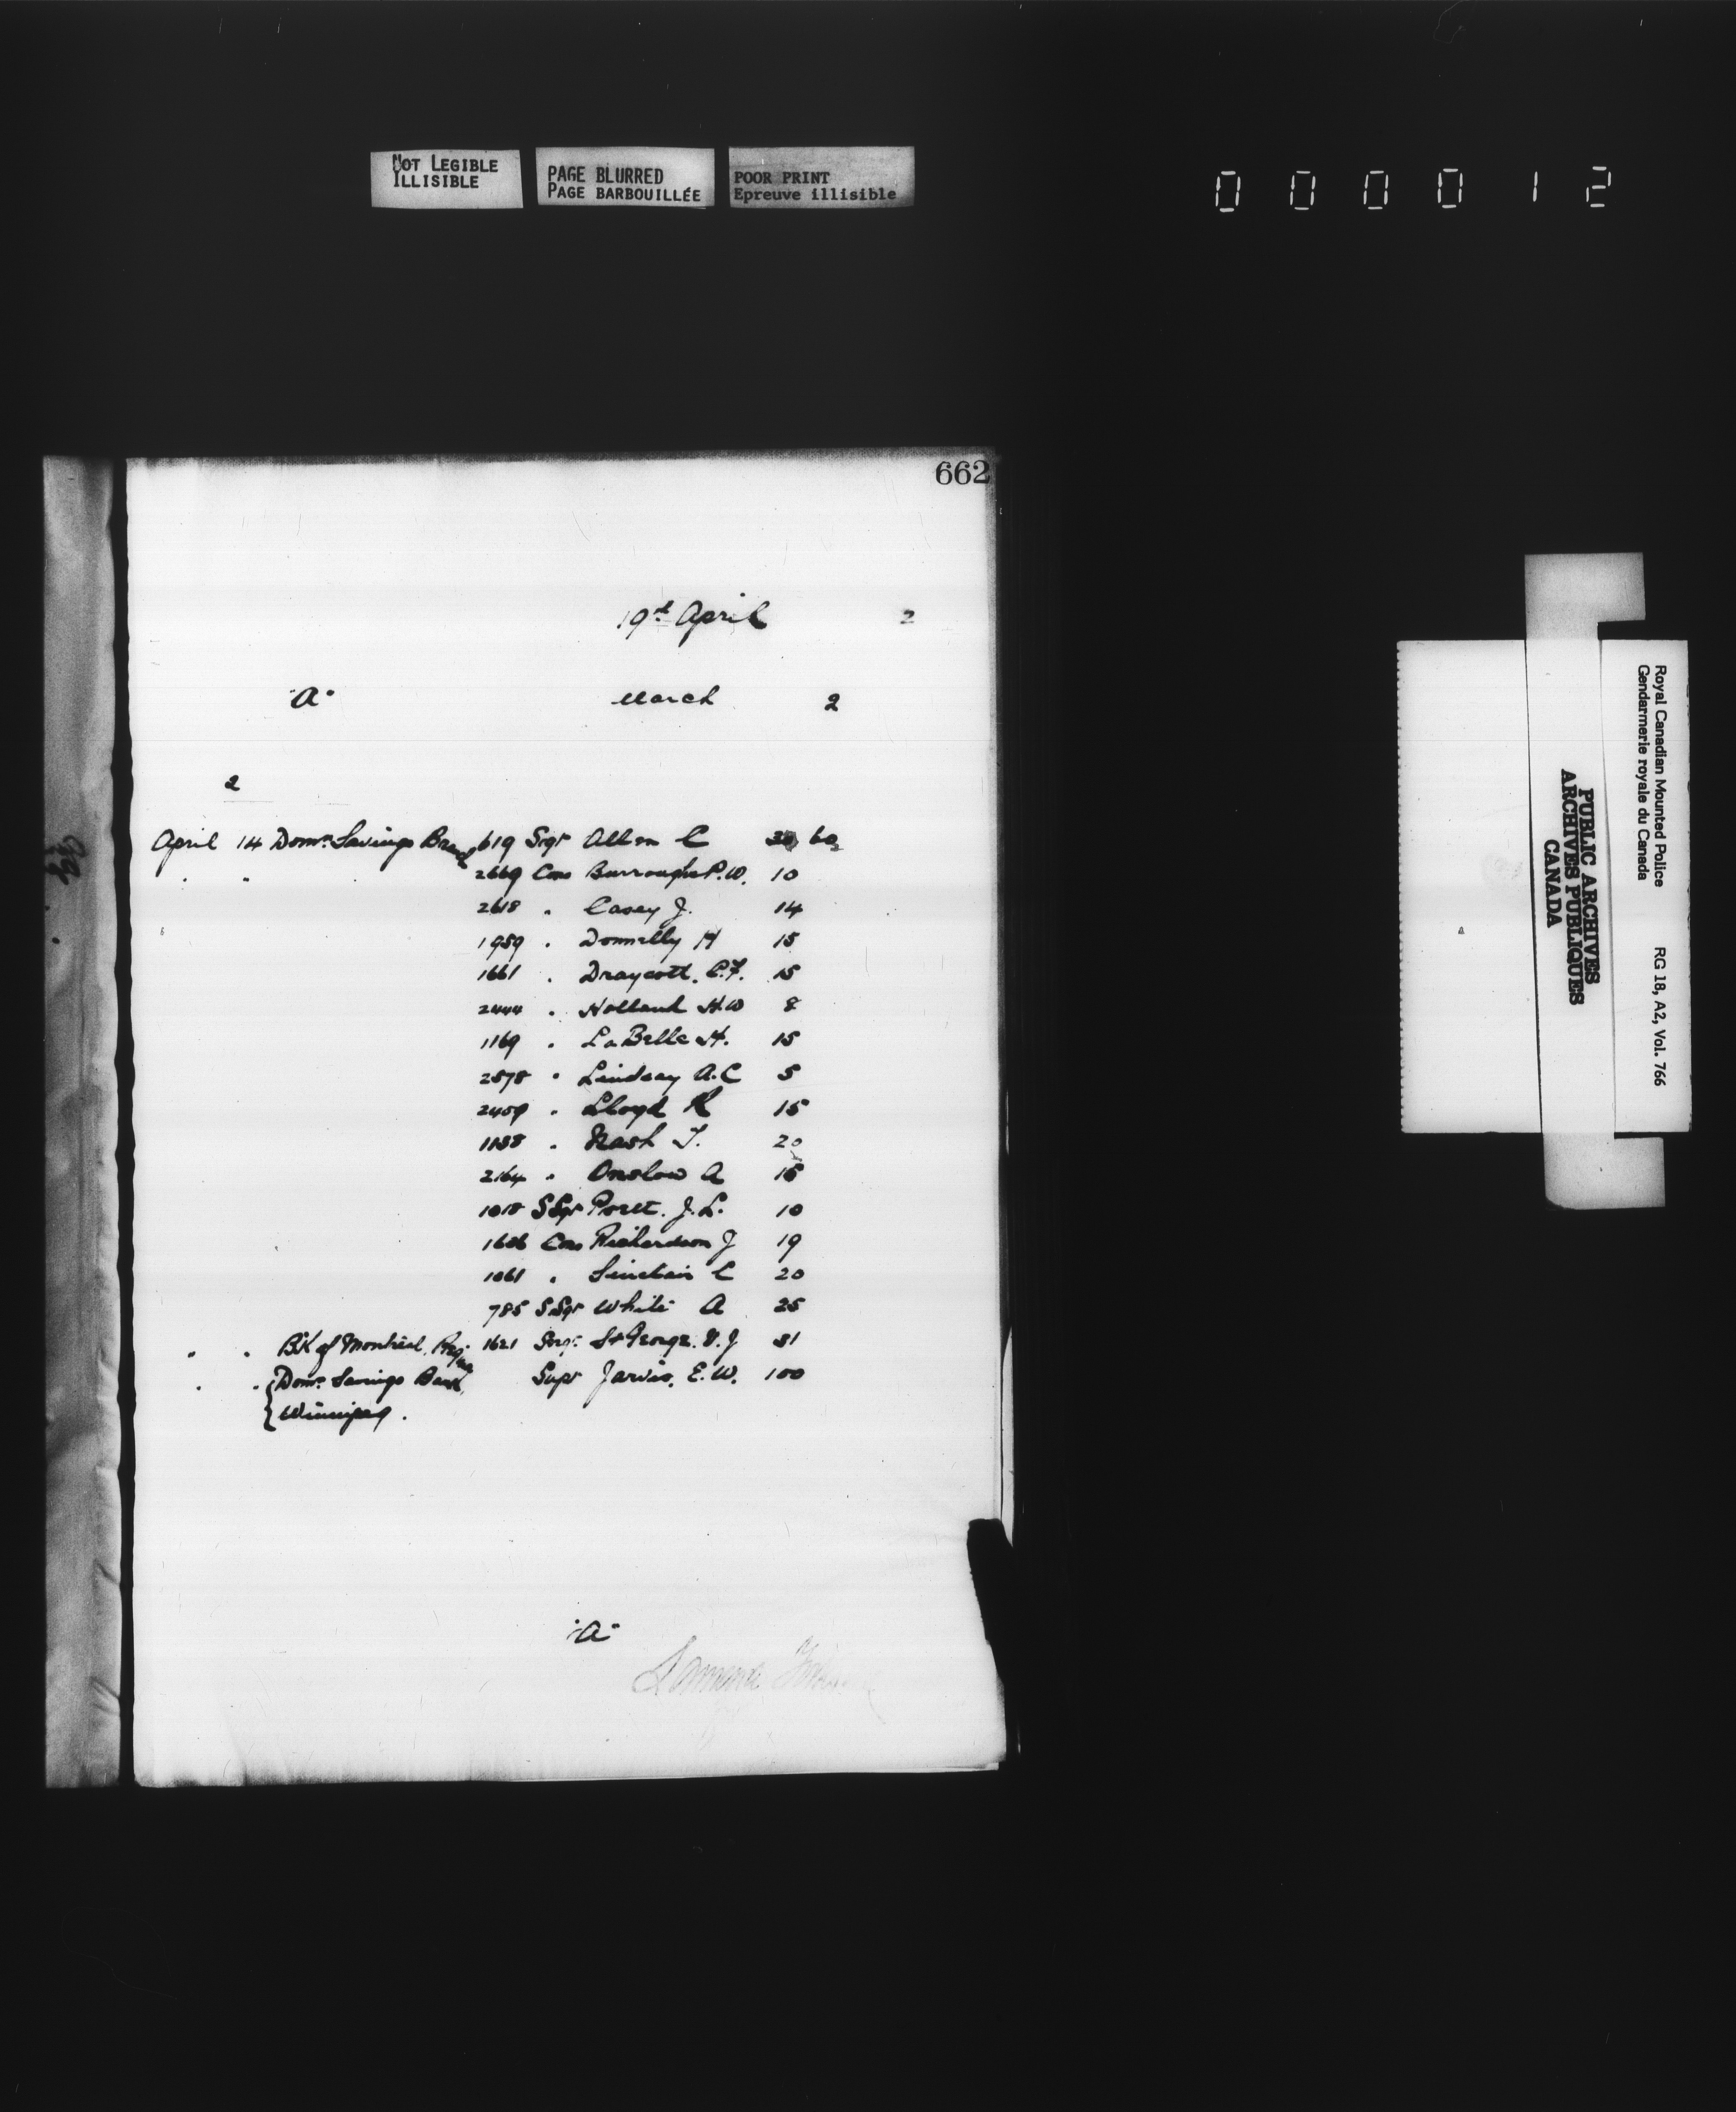 NOT LEGIBLE
ILLISIBLE
PAGE BLURRED
PAGE BARBOUILLÉE
POOR PRINT
Epreuve illisible
000012
662
19th April 2
"A" March 2
2
April 14 Domn. Savings Bank 619 Sergt Allen C 60
" " 2669 Cons Burroughs P.W. 10
2618 " Casey J. 14
1959 " Donnelly H 15
1661 " Draycott. C.F. 15
2444 " Holland H.W 8
1169 " LaBelle H. 15
2578 " Lindsay A.C 5
2459 " Lloyd R 15
1158 " Nash T. 20
2164 " Onslow A 15
1018 S Sgt Poett. J.L. 10
1686 Cons Richardson J 19
1061 " Sinclair C 20
785 S Sgt White A 25
" " Bk of Montreal. Regina 1621 Sergt St George. J 31
" " Domn. Savings Bank Supt Jarvis. E.W. 100
Winnipeg.
"A"
Royal Canadian Mounted Police RG 18, A2, Vol. 766
Gendarmerie royale du Canada
PUBLIC ARCHIVES
ARCHIVES PUBLIQUES
CANADA